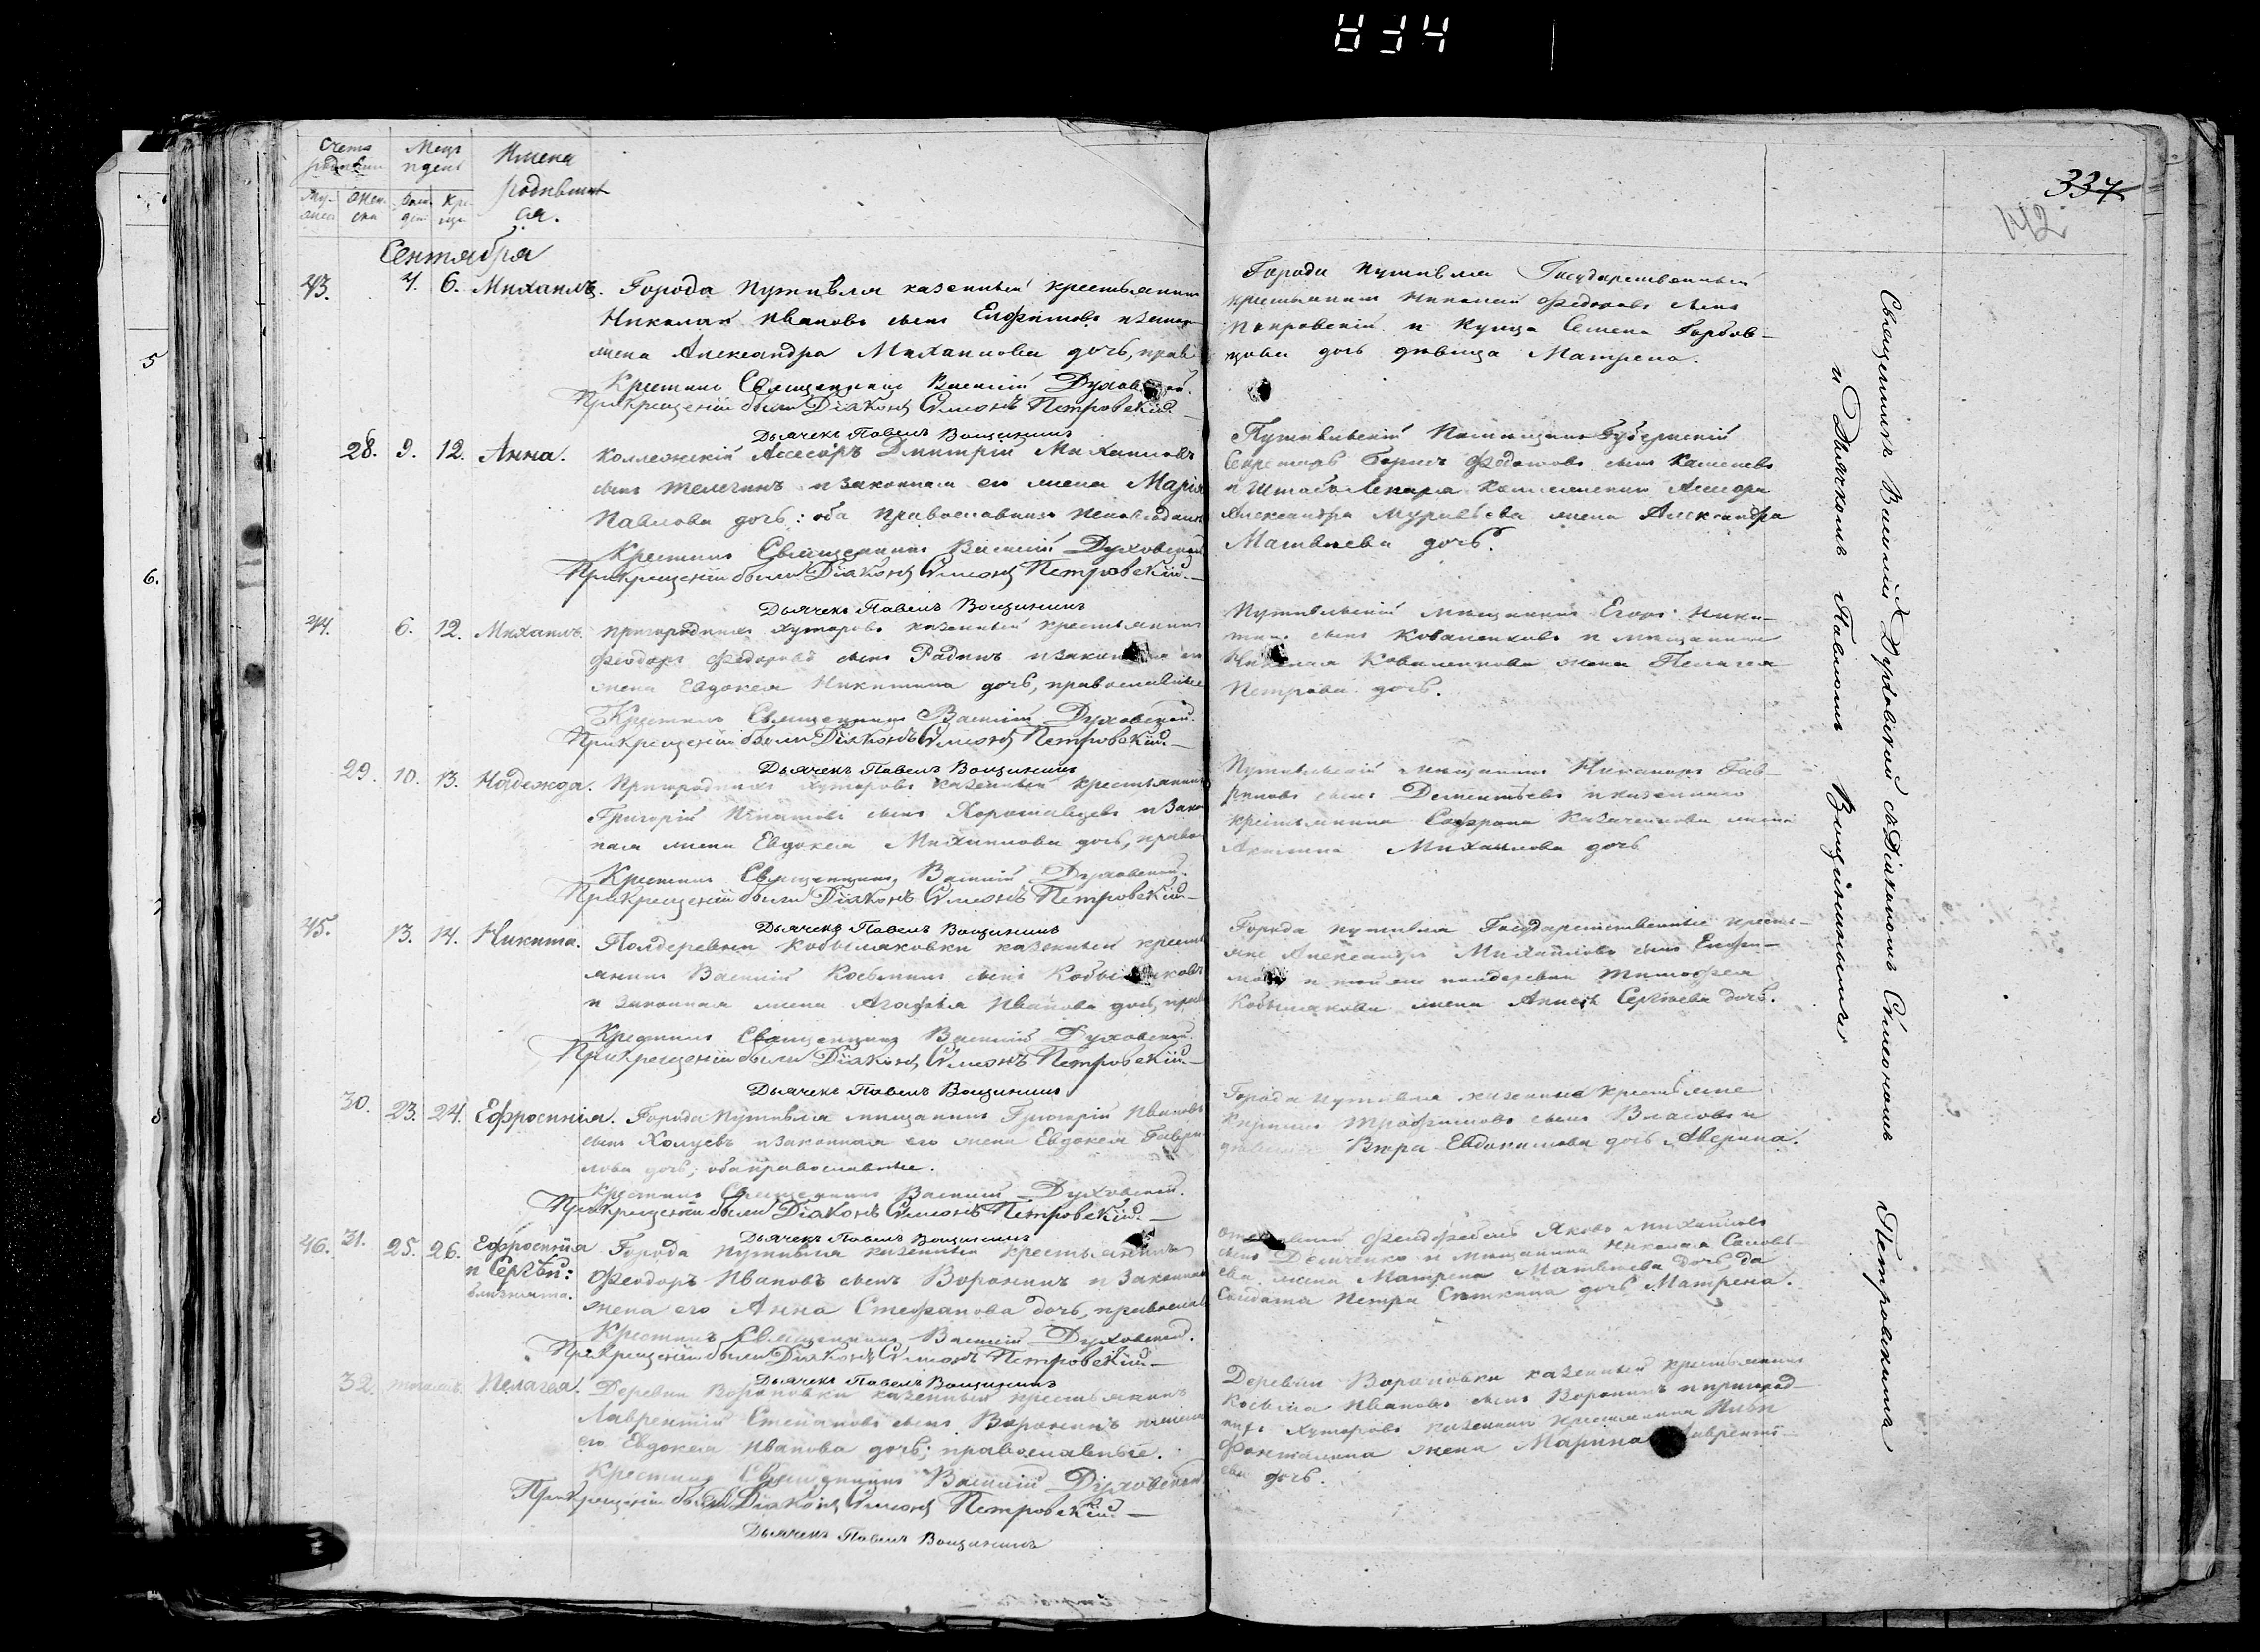 834
337
142
Счетъ родившихся
Мѣсяцъ и день
Имена родившихся.
Сентября
43. 4. 6. Михаилъ. Города Путивля казенный крестьянинъ
Николай Ивановъ сынъ Елфимовъ и законная
жена Александра Михаилова дочь, прав
Крестилъ Священникъ Василій Духовской.
При крещеніи были Діаконъ Симеонъ Петровскій.
Дьячекъ Павелъ Вощининъ
Города Путивля Государственный
крестьянинъ Николай Федоровъ сынъ
Покровскій и купца Семена Горбов-
цова дочь дѣвица Матрена.
28. 9. 12. Анна. Коллежскій Ассесоръ Дмитрій Михаиловъ
сынъ Телегинъ и законная его жена Марія
Павлова дочь: оба Православнаго Исповѣданія
Крестилъ Священникъ Василій Духовской
При крещеніи были Діаконъ Симеонъ Петровскій.
Дьячекъ Павелъ Вощининъ
Путивльскій Помѣщикъ Губернскій
Секретарь Борисъ Федотовъ сынъ
и Штабъ Лекаря Ассесора
Александра Муравьева жена Александра
Матвѣева дочь.
44. 6. 12. Михаилъ. Пригородныхъ хуторовъ казенный крестьянинъ
Феодоръ Федоровъ сынъ Радинъ и законная его
жена Евдокея Никитина дочь, православные
Крестилъ Священникъ Василій Духовской.
При крещеніи были Діаконъ Симеонъ Петровскій.
Дьячекъ Павелъ Вощининъ
Путивльскій мѣщанинъ Егоръ Ники-
тинъ сынъ Коваленковъ и мѣщанина
Николая Коваленкова жена Пелагея
Петрова дочь.
29. 10. 13. Надежда. Пригородныхъ хуторовъ казенный крестьянинъ
Григорій Игнатовъ сынъ и закон
ная жена Евдокея Михаилова дочь, право
Крестилъ Священникъ Василій Духовской.
При крещеніи были Діаконъ Симеонъ Петровскій.
Дьячекъ Павелъ Вощининъ
Путивльскій мѣщанинъ Никаноръ Гав-
риловъ сынъ Дементьевъ и казеннаго
крестьянина Софрона Казаченкова жена
Акилина Михаилова дочь
45. 13. 14. Никита. Полдеревни Кобылаковки казенный кресть
янинъ Василій Косминъ сынъ Кобылаковъ
и законная жена Агафья Иванова дочь, прав
Крестилъ Священникъ Василій Духовской.
При крещеніи были Діаконъ Симеонъ Петровскій.
Дьячекъ Павелъ Вощининъ
Города Путивля Государственные кресть-
яне Александръ Михаиловъ сынъ Елфи-
мовъ и той же полдеревни Тимофея
Кобылакова жена Сергѣева дочь.
30. 23. 24. Ефросинія. Города Путивля мѣщанинъ Григорій Ивановъ
сынъ Холуевъ и законная его жена Евдокея Гаври
лова дочь; оба православные.
Крестилъ Священникъ Василій Духовской.
При крещеніи были Діаконъ Симеонъ Петровскій.
Дьячекъ Павелъ Вощининъ
Города Путивля казенные крестьяне
Трофимовъ сынъ Власовъ и
дѣвица Вѣра Евдокимова дочь Аверина.
46. 31. 25. 26. Ефросинія
и Сергѣй:
близнята.
Города Путивля казенный крестьянинъ
Феодоръ Ивановъ сынъ Воронинъ и законная
жена его Анна Стефанова дочь, православ
Крестилъ Священникъ Василій Духовской.
При крещеніи были Діаконъ Симеонъ Петровскій.
Дьячекъ Павелъ Вощининъ
Фельдфебель Яковъ Михаиловъ
сынъ Демченко и мѣщанина Николая Соловь-
ева жена Матрена Матвѣева дочь, да
Солдата Петра дочь Матрена.
32. Пелагея. Деревни Вороновки казенный крестьянинъ
Лаврентій Степановъ сынъ Воронинъ и жена
его Евдокея Иванова дочь; православные.
Крестилъ Священникъ Василій Духовской
При крещеніи были Діаконъ Симеонъ Петровскій.
Дьячекъ Павелъ Вощининъ
Деревни Вороновки казенный крестьянинъ
Косьма Ивановъ сынъ Воронинъ и пригород-
ныхъ хуторовъ казеннаго крестьянина Ильи
жена Марина Лавренті-
ева дочь.
Священникъ Василій Духовской съ Діакономъ Симеономъ Петровскимъ
и Дьячкомъ Павломъ Вощининымъ
5
6.
8.